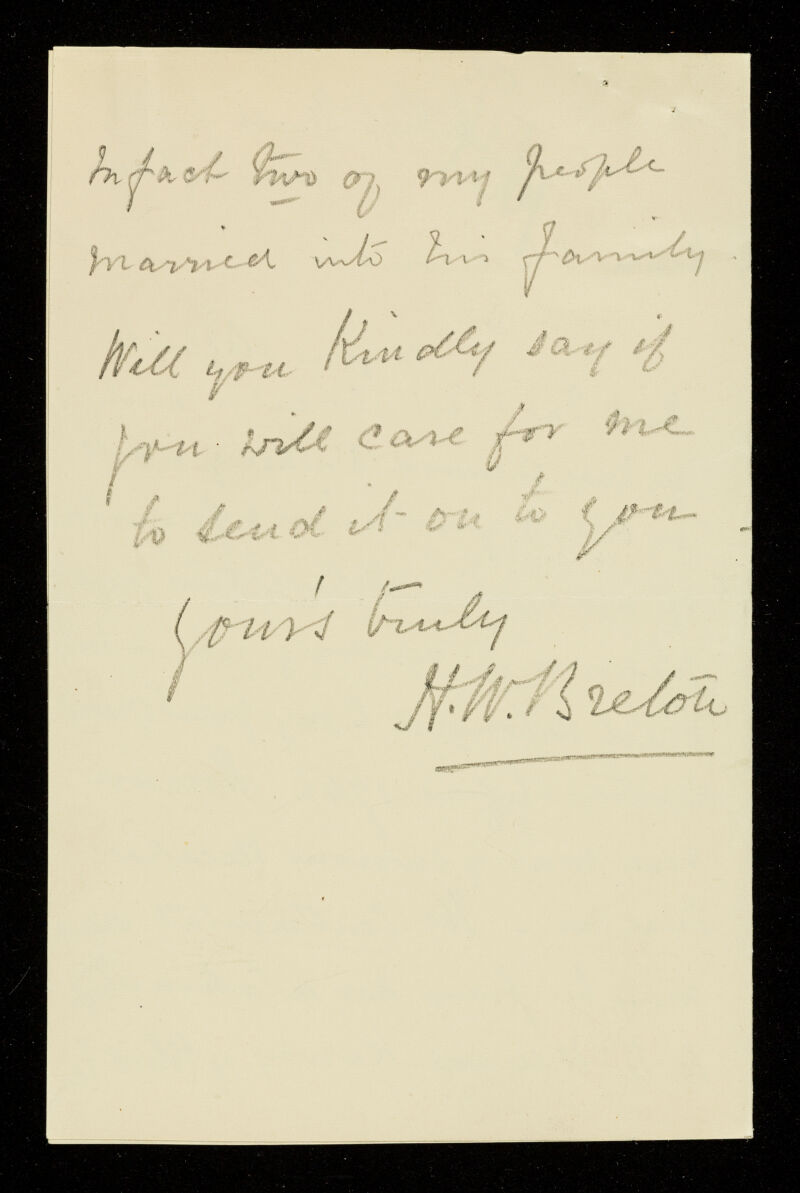 In fact two of my people
married into his family.
Will you Kindly say if
you will care for me
to send it on to you -
your's truly
H. W. Breton